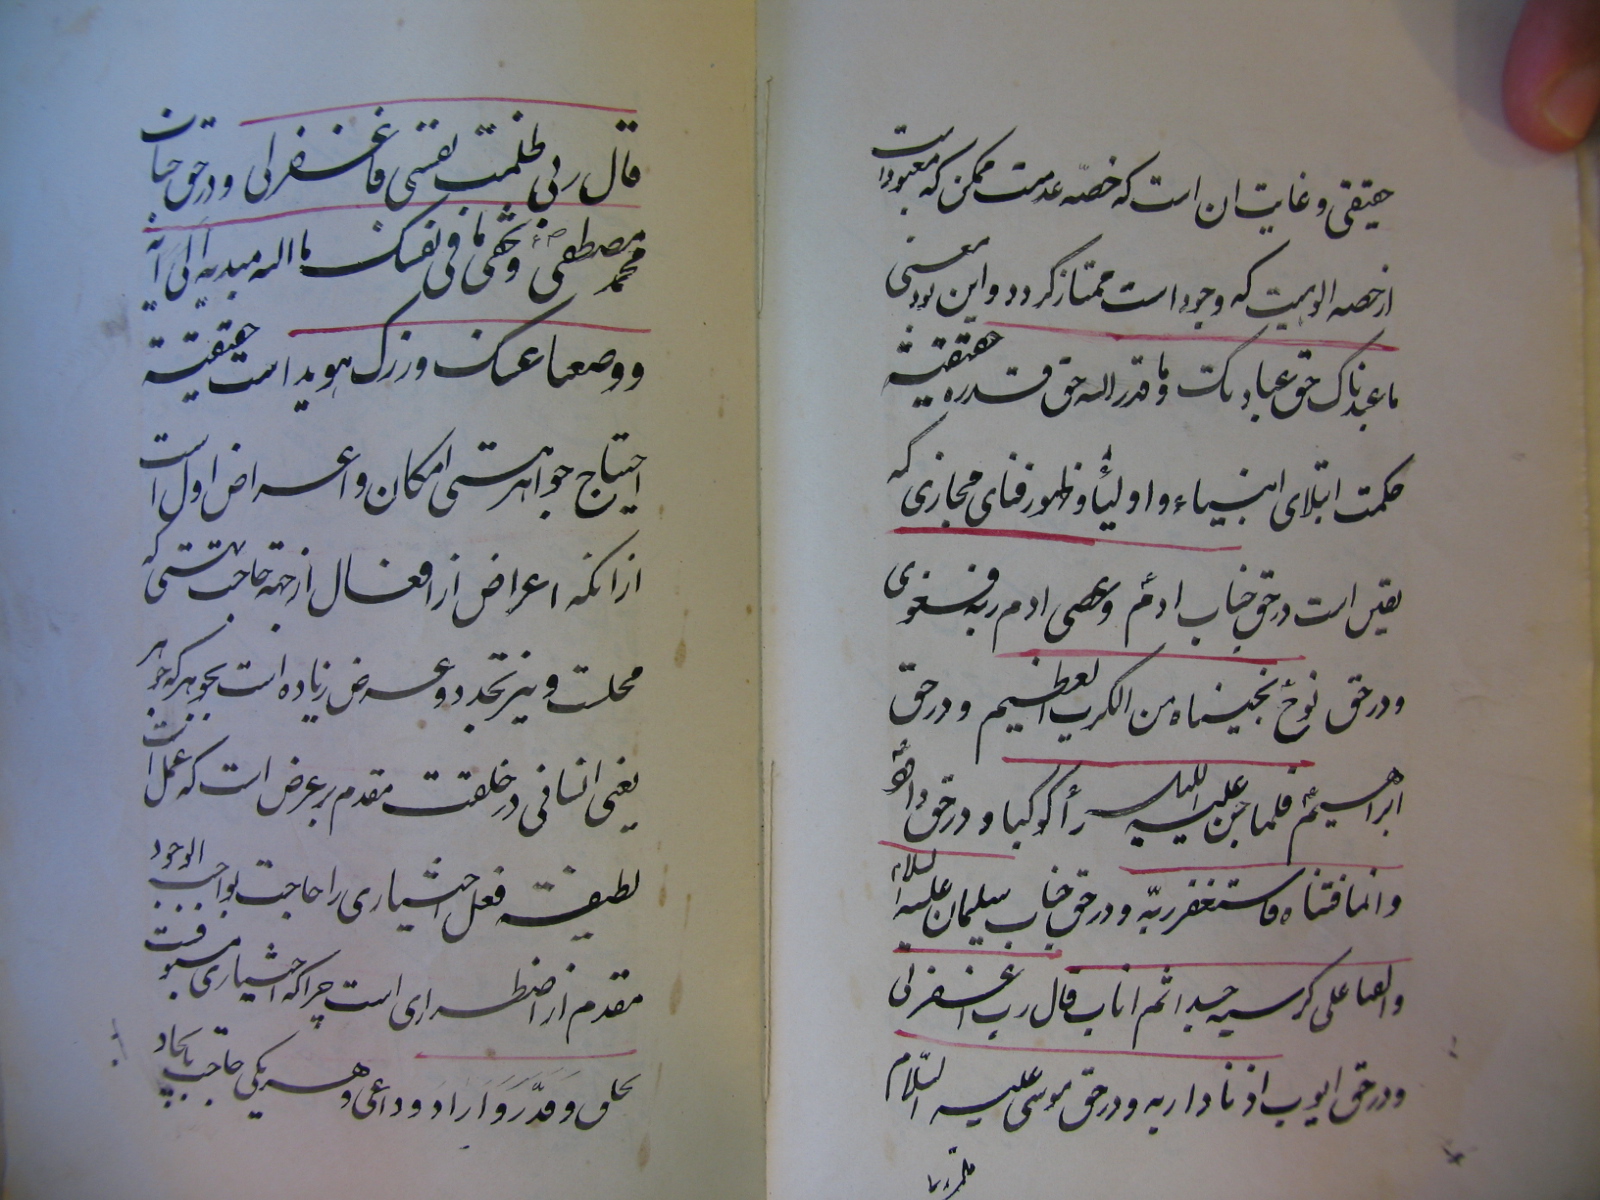 حقیقی و غایت ان است که خصه عدمت ممکن که معبود است
از خصه الوهیت که وجود است ممتاز گردد و این بود معنی
ما عبدناک حق عبادتک و ما قدر الله حق قدره حقیقتیة
حکمت ابتلای انبیاء و اولیاء و ظهور فنای مجازی که
یقین است در حق جناب ادمؑ و عصی ادم ربه فغوی
و در حق نوحؑ نجیناه من الکرب العظیم و در حق
ابراهیمؑ فلما جن علیه اللیل رأ کوکبا و در حق داودؑ
و انما فتناه فاستغفر ربّه و در حق جناب سلیمان علیه السلام
و القینا علی کرسیه جسدا ثم اناب قال رب اغفرلی
و در حق ایوب اذ نادا ربه و در حق موسی علیه السّلام
قال ربی ظلمت نفسی فاغفرلی و در حق جناب
محمد مصطفی و تخفی ما فی نفسک ما الله مبدیه الی آیه
و وضعنا عنک وزرک هویدا است حقیقیة
احتیاج جواهر هستی امکان و اعراض اول است
از انکه اعراض از افعال از جهه حاجت هستی که
محلست و نیز تجدد و عرض زیاده است بجوهر که جوهر
یعنی انسانی در خلقت مقدم بر عرض است که عمل است
لطیفیة فعل اختیاری را حاجت بواجب الوجود
مقدم از اضطراری است چرا که اختیاری مسبوقست
بخلق و قدّر و اراد و داعی و هر یکی حاجت بایجاد